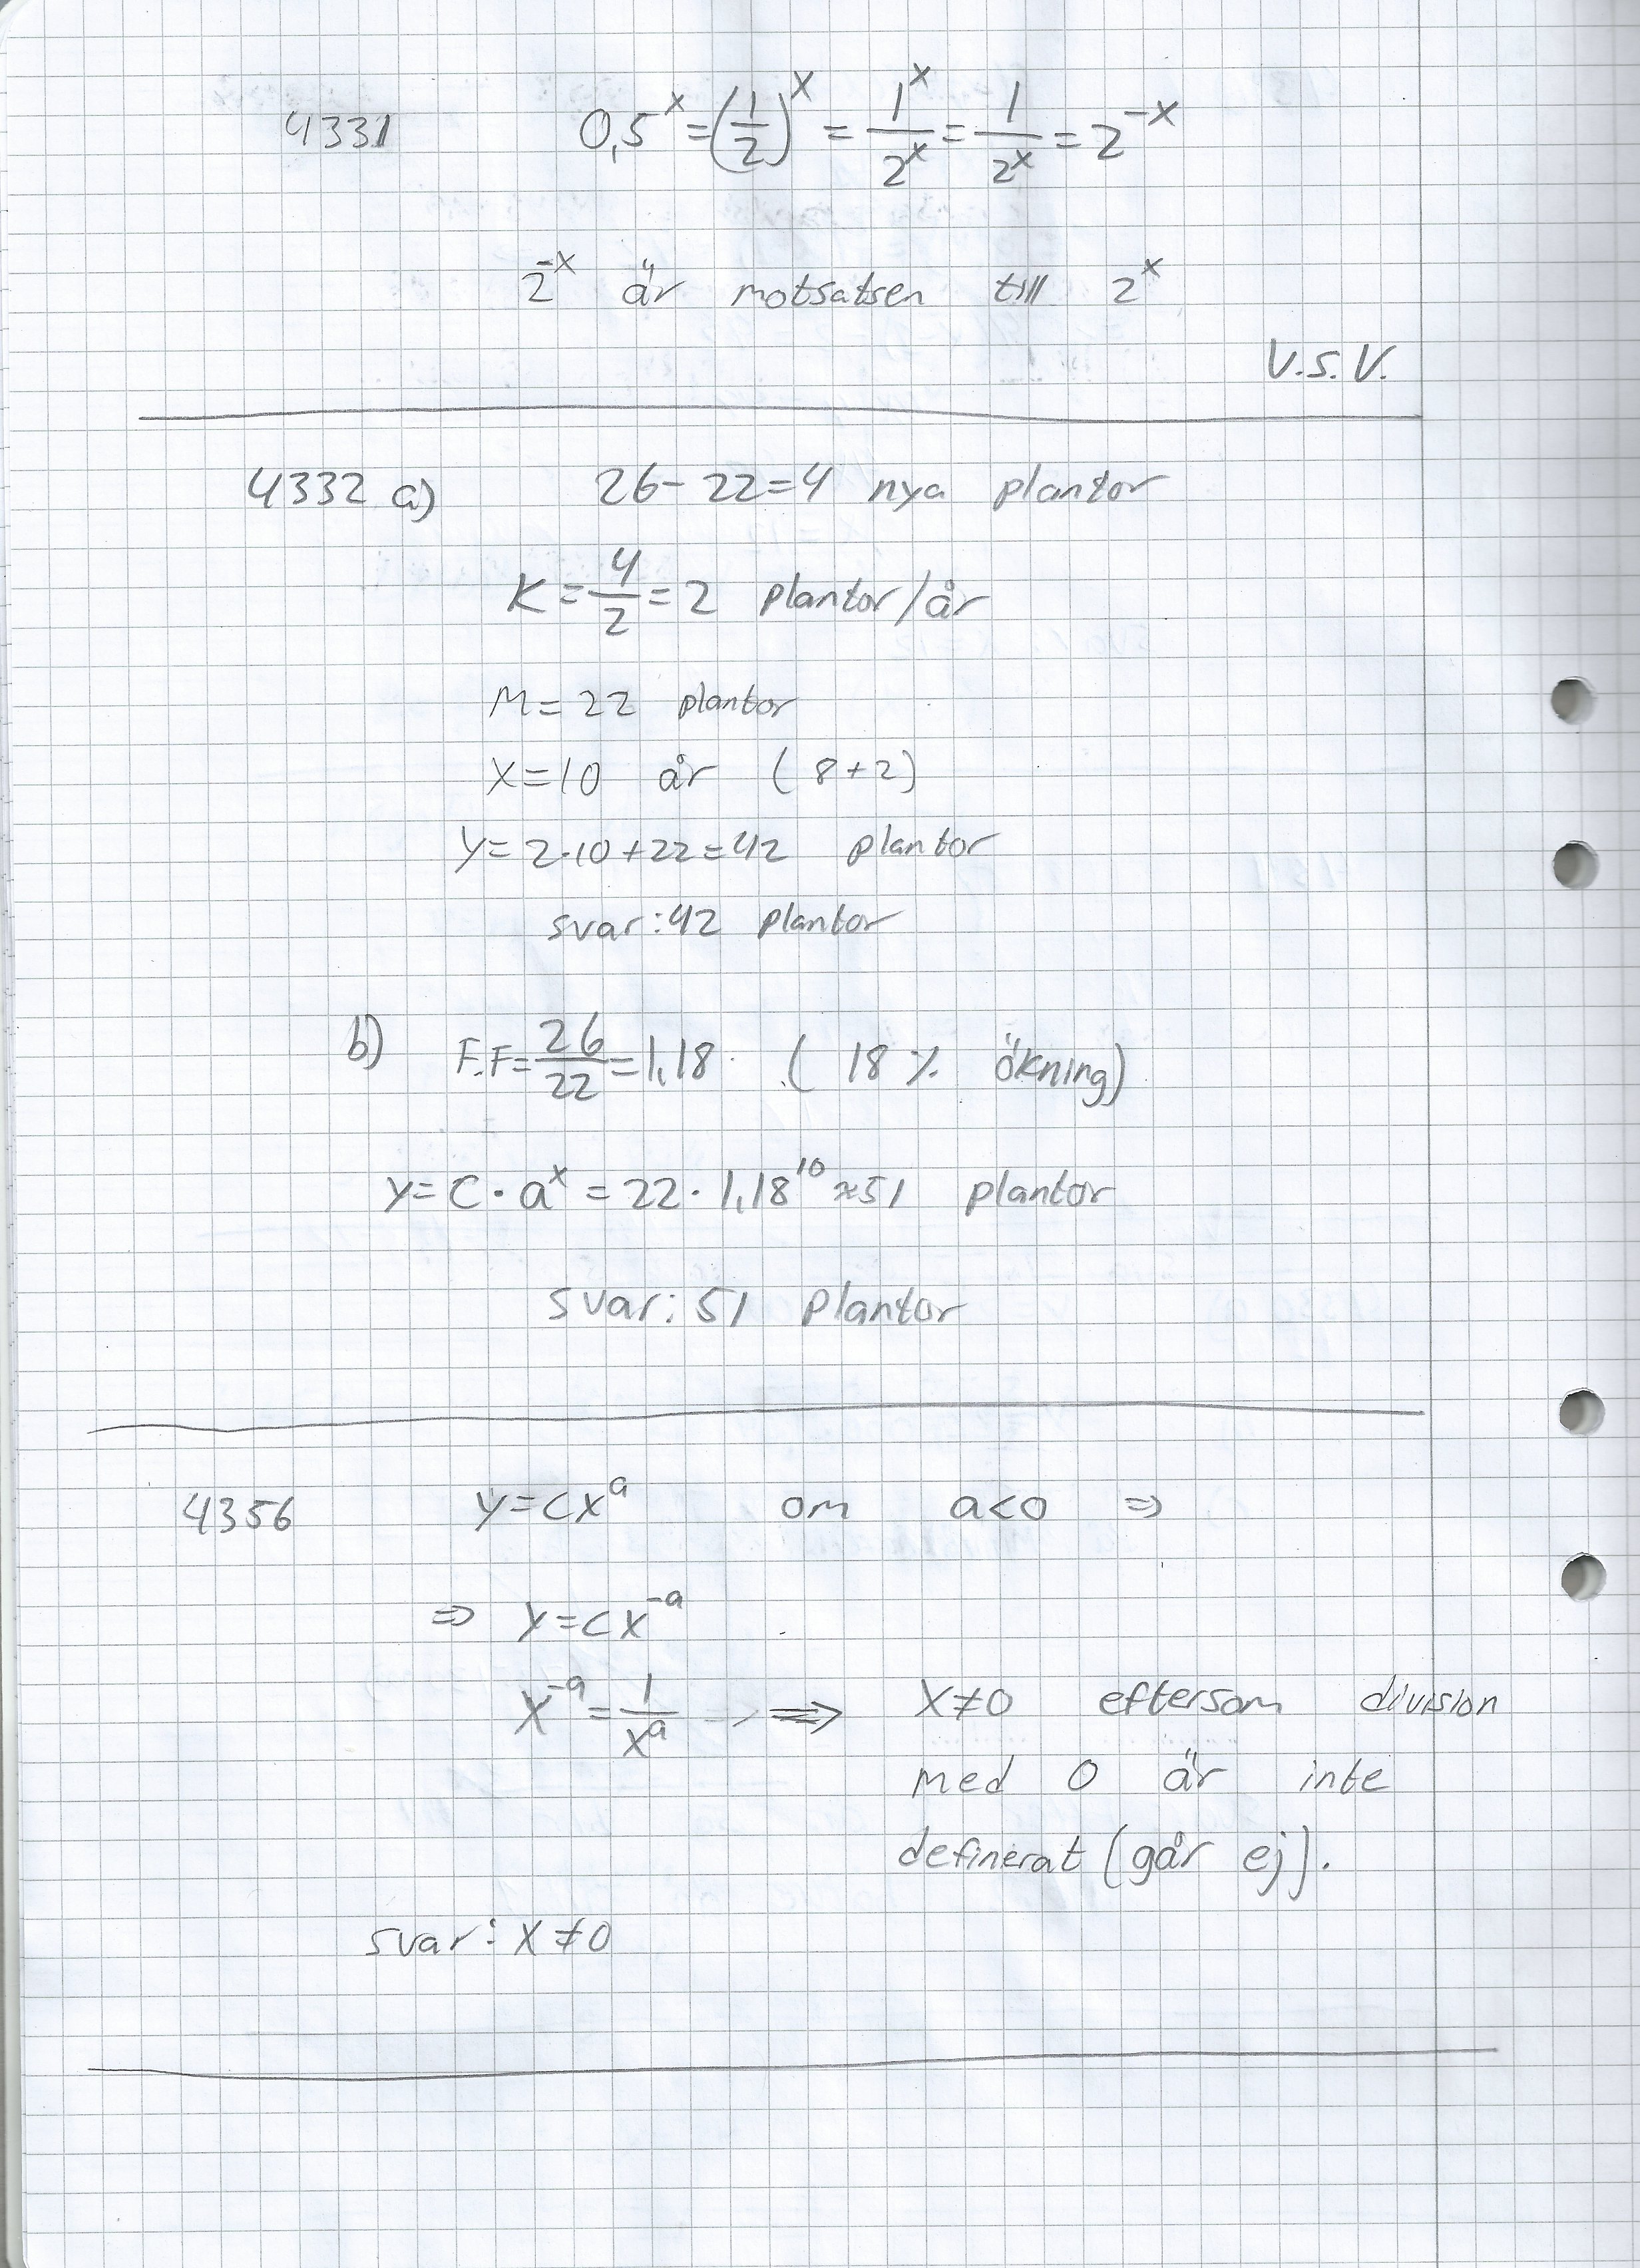 4331 0,5^x = (1/2)^x = 1^x/2^x = 1/2^x = 2^-x
2^-x är motsatsen till 2^x
V.S.V.
4332 a) 26-22=4 nya plantor
K = 4/2 = 2 plantor/år
M = 22 plantor
X = 10 år (8+2)
Y = 2·10+22=42 plantor
svar: 42 plantor
b) F.F = 26/22 = 1,18 (18% ökning)
y = C · a^x = 22 · 1,18^10 ≈ 51 plantor
svar: 51 plantor
4356 y = cx^a om a<0 ⇒
⇒ y = cx^-a
x^-a = 1/x^a ⇒ x≠0 eftersom division
med 0 är inte
definerat (går ej).
svar: x≠0